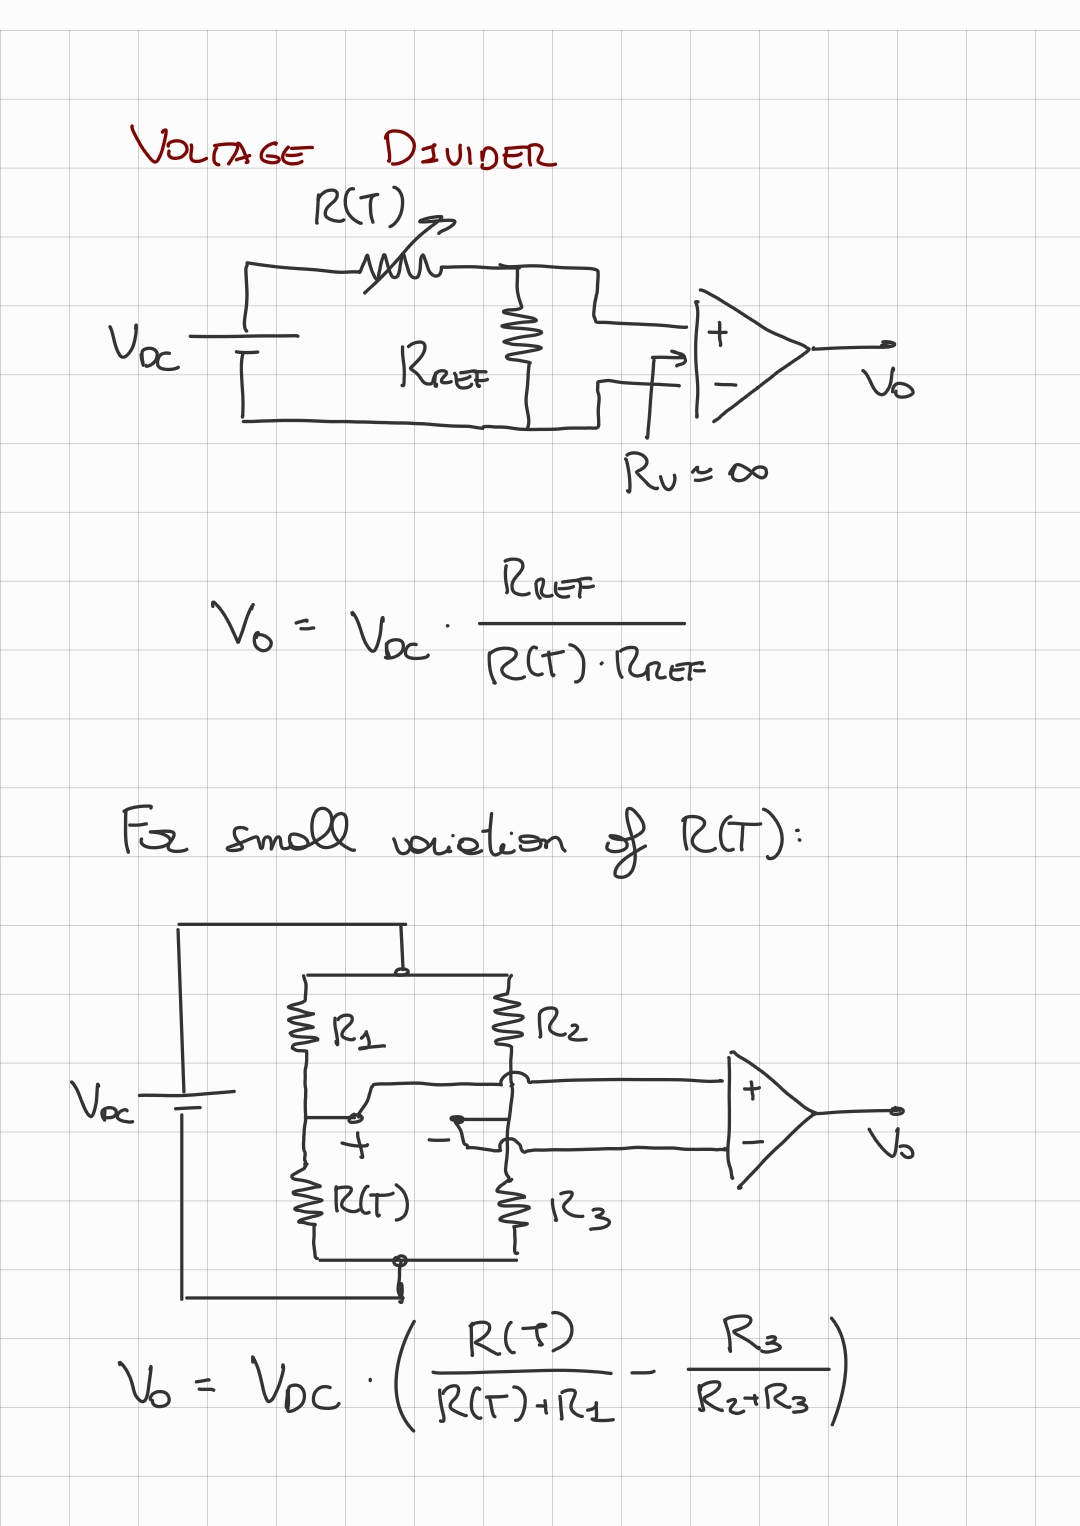 VOLTAGE DIVIDER
R(T)
VDC
RREF
+
-
Vo
Rv ≈ ∞
Vo = VDC · RREF / R(T) · RREF
For small variation of R(T):
R1
R2
VDC
+
-
+
-
Vo
R(T)
R3
Vo = VDC · ( R(T) / R(T)+R1 - R3 / R2+R3 )